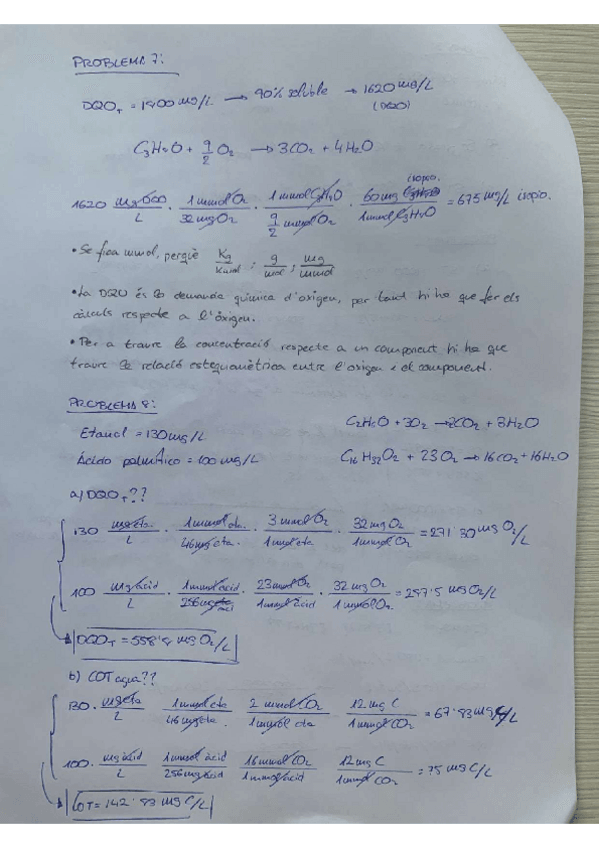 PROBLEMA 7:
DQO_T = 1800 mg/L → 90% soluble → 1620 mg/L
(DQO)
C3H8O + 9/2 O2 → 3CO2 + 4H2O
isoprо.
1620 mg DQO/L · 1 mmol O2/32 mg O2 · 1 mmol C3H8O/(9/2 mmol O2) · 60 mg/1 mmol C3H8O = 675 mg/L isopro.
• Se fica mmol, perquè Kg/Kmol ; g/mol ; mg/mmol
• La DQO és la demanda química d'oxigen, per tant hi ha que fer els
càlculs respecte a l'òxigen.
• Per a traure la concentració respecte a un component hi ha que
traure la relació estequiomètrica entre l'oxigen i el component.
PROBLEMA 8:
Etanol = 130 mg/L
C2H6O + 3O2 → 2CO2 + 3H2O
Ácido palmítico = 100 mg/L
C16H32O2 + 23O2 → 16CO2 + 16H2O
a) DQO_T??
130 mg eta./L · 1 mmol eta./46 mg eta. · 3 mmol O2/1 mmol eta · 32 mg O2/1 mmol O2 = 271'30 mg O2/L
100 mg ácid/L · 1 mmol ácid/256 mg ácid · 23 mmol O2/1 mmol ácid · 32 mg O2/1 mmol O2 = 287'5 mg O2/L
DQO_T = 558'8 mg O2/L
b) COT agua??
130 · mg eta/L 1 mmol eta/46 mg eta. 2 mmol CO2/1 mmol eta 12 mg C/1 mmol CO2 = 67'83 mg C/L
100 · mg ácid/L 1 mmol ácid/256 mg ácid 16 mmol CO2/1 mmol ácid 12 mg C/1 mmol CO2 = 75 mg C/L
COT = 142'83 mg C/L